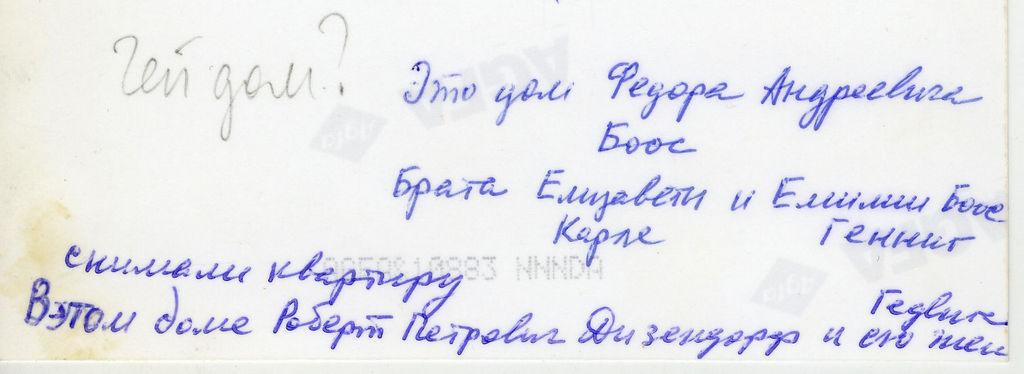 Чей дом?
Это дом Федора Андреевича
Боос
Брата Елизаветы и Емилии Боос
Карле Геннит
снимали квартиру
Гедвига
В этом доме Роберт Петрович Дизендорф и его жен
AGFA
NNNDA